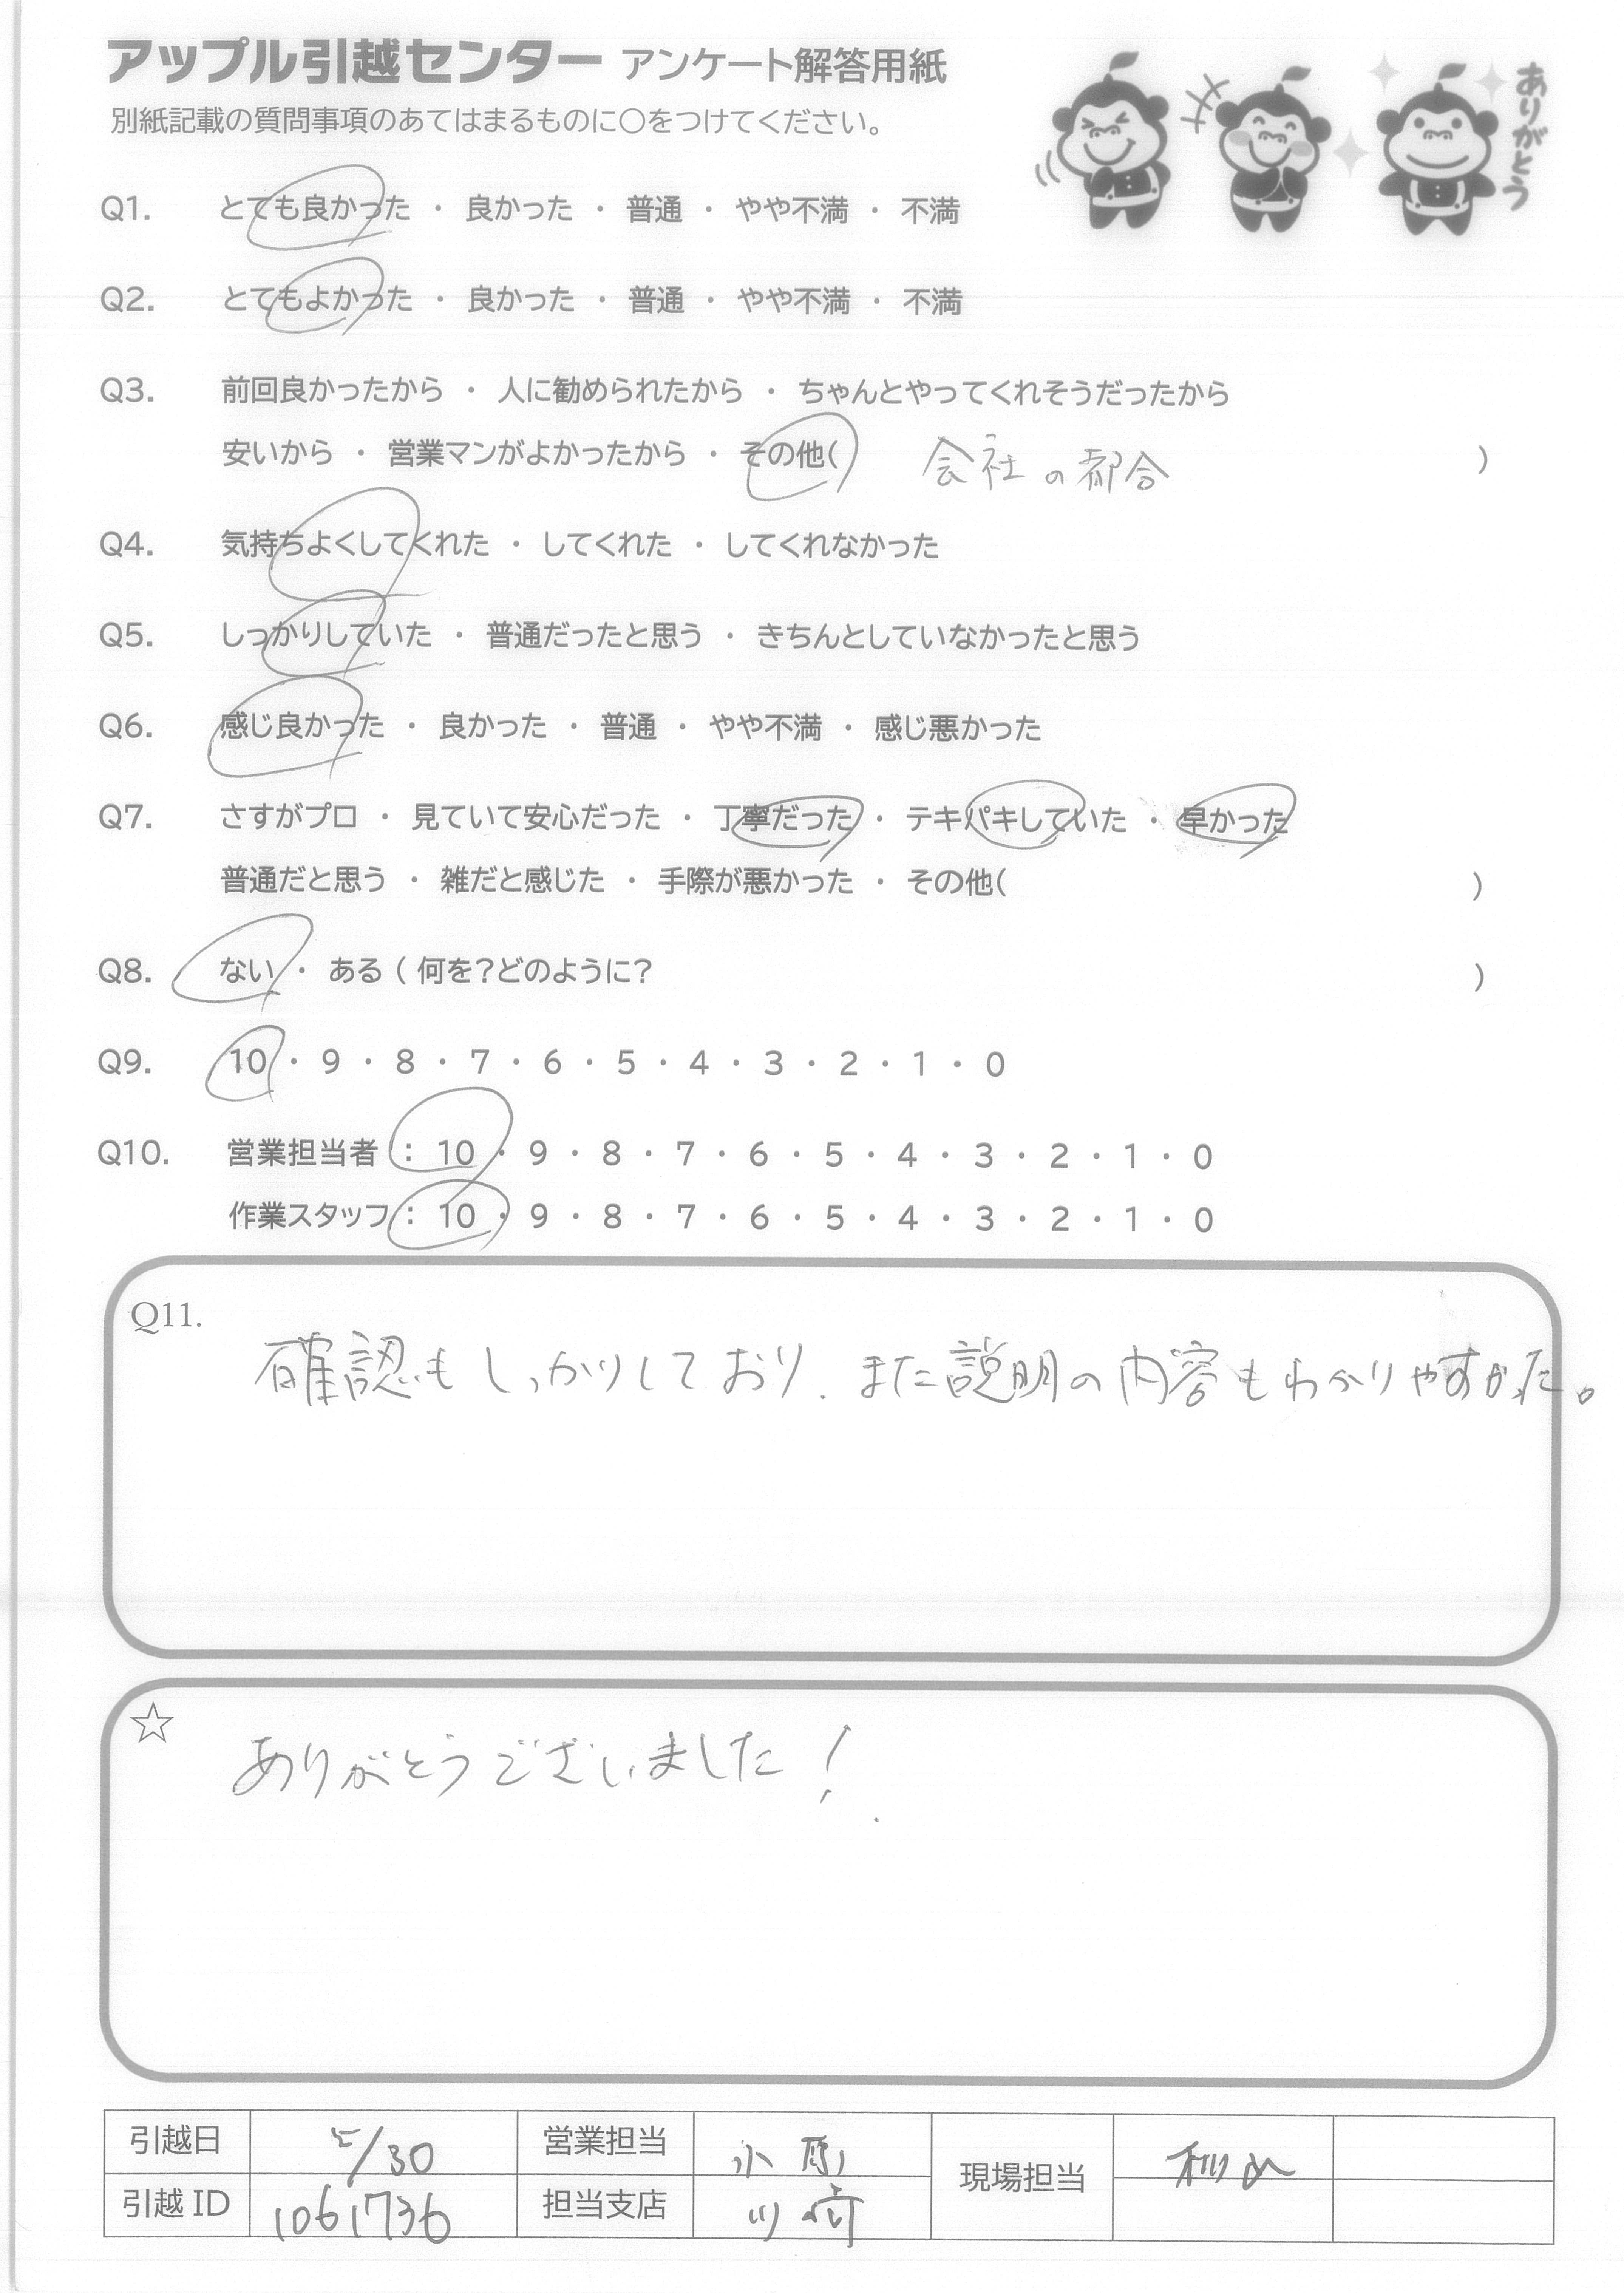 アップル引越センター アンケート解答用紙
別紙記載の質問事項のあてはまるものに〇をつけてください。
ありがとう
Q1. とても良かった ・ 良かった ・ 普通 ・ やや不満 ・ 不満
Q2. とてもよかった ・ 良かった ・ 普通 ・ やや不満 ・ 不満
Q3. 前回良かったから ・ 人に勧められたから ・ ちゃんとやってくれそうだったから
安いから ・ 営業マンがよかったから ・ その他( 会社の都合 )
Q4. 気持ちよくしてくれた ・ してくれた ・ してくれなかった
Q5. しっかりしていた ・ 普通だったと思う ・ きちんとしていなかったと思う
Q6. 感じ良かった ・ 良かった ・ 普通 ・ やや不満 ・ 感じ悪かった
Q7. さすがプロ ・ 見ていて安心だった ・ 丁寧だった ・ テキパキしていた ・ 早かった
普通だと思う ・ 雑だと感じた ・ 手際が悪かった ・ その他( )
Q8. ない ・ ある ( 何を?どのように? )
Q9. 10 ・ 9 ・ 8 ・ 7 ・ 6 ・ 5 ・ 4 ・ 3 ・ 2 ・ 1 ・ 0
Q10. 営業担当者 : 10 ・ 9 ・ 8 ・ 7 ・ 6 ・ 5 ・ 4 ・ 3 ・ 2 ・ 1 ・ 0
作業スタッフ : 10 ・ 9 ・ 8 ・ 7 ・ 6 ・ 5 ・ 4 ・ 3 ・ 2 ・ 1 ・ 0
Q11.
確認もしっかりしており、また説明の内容もわかりやすかった。
☆
ありがとうございました!
引越日 5/30 営業担当 小原 現場担当
引越ID 1061736 担当支店 川崎